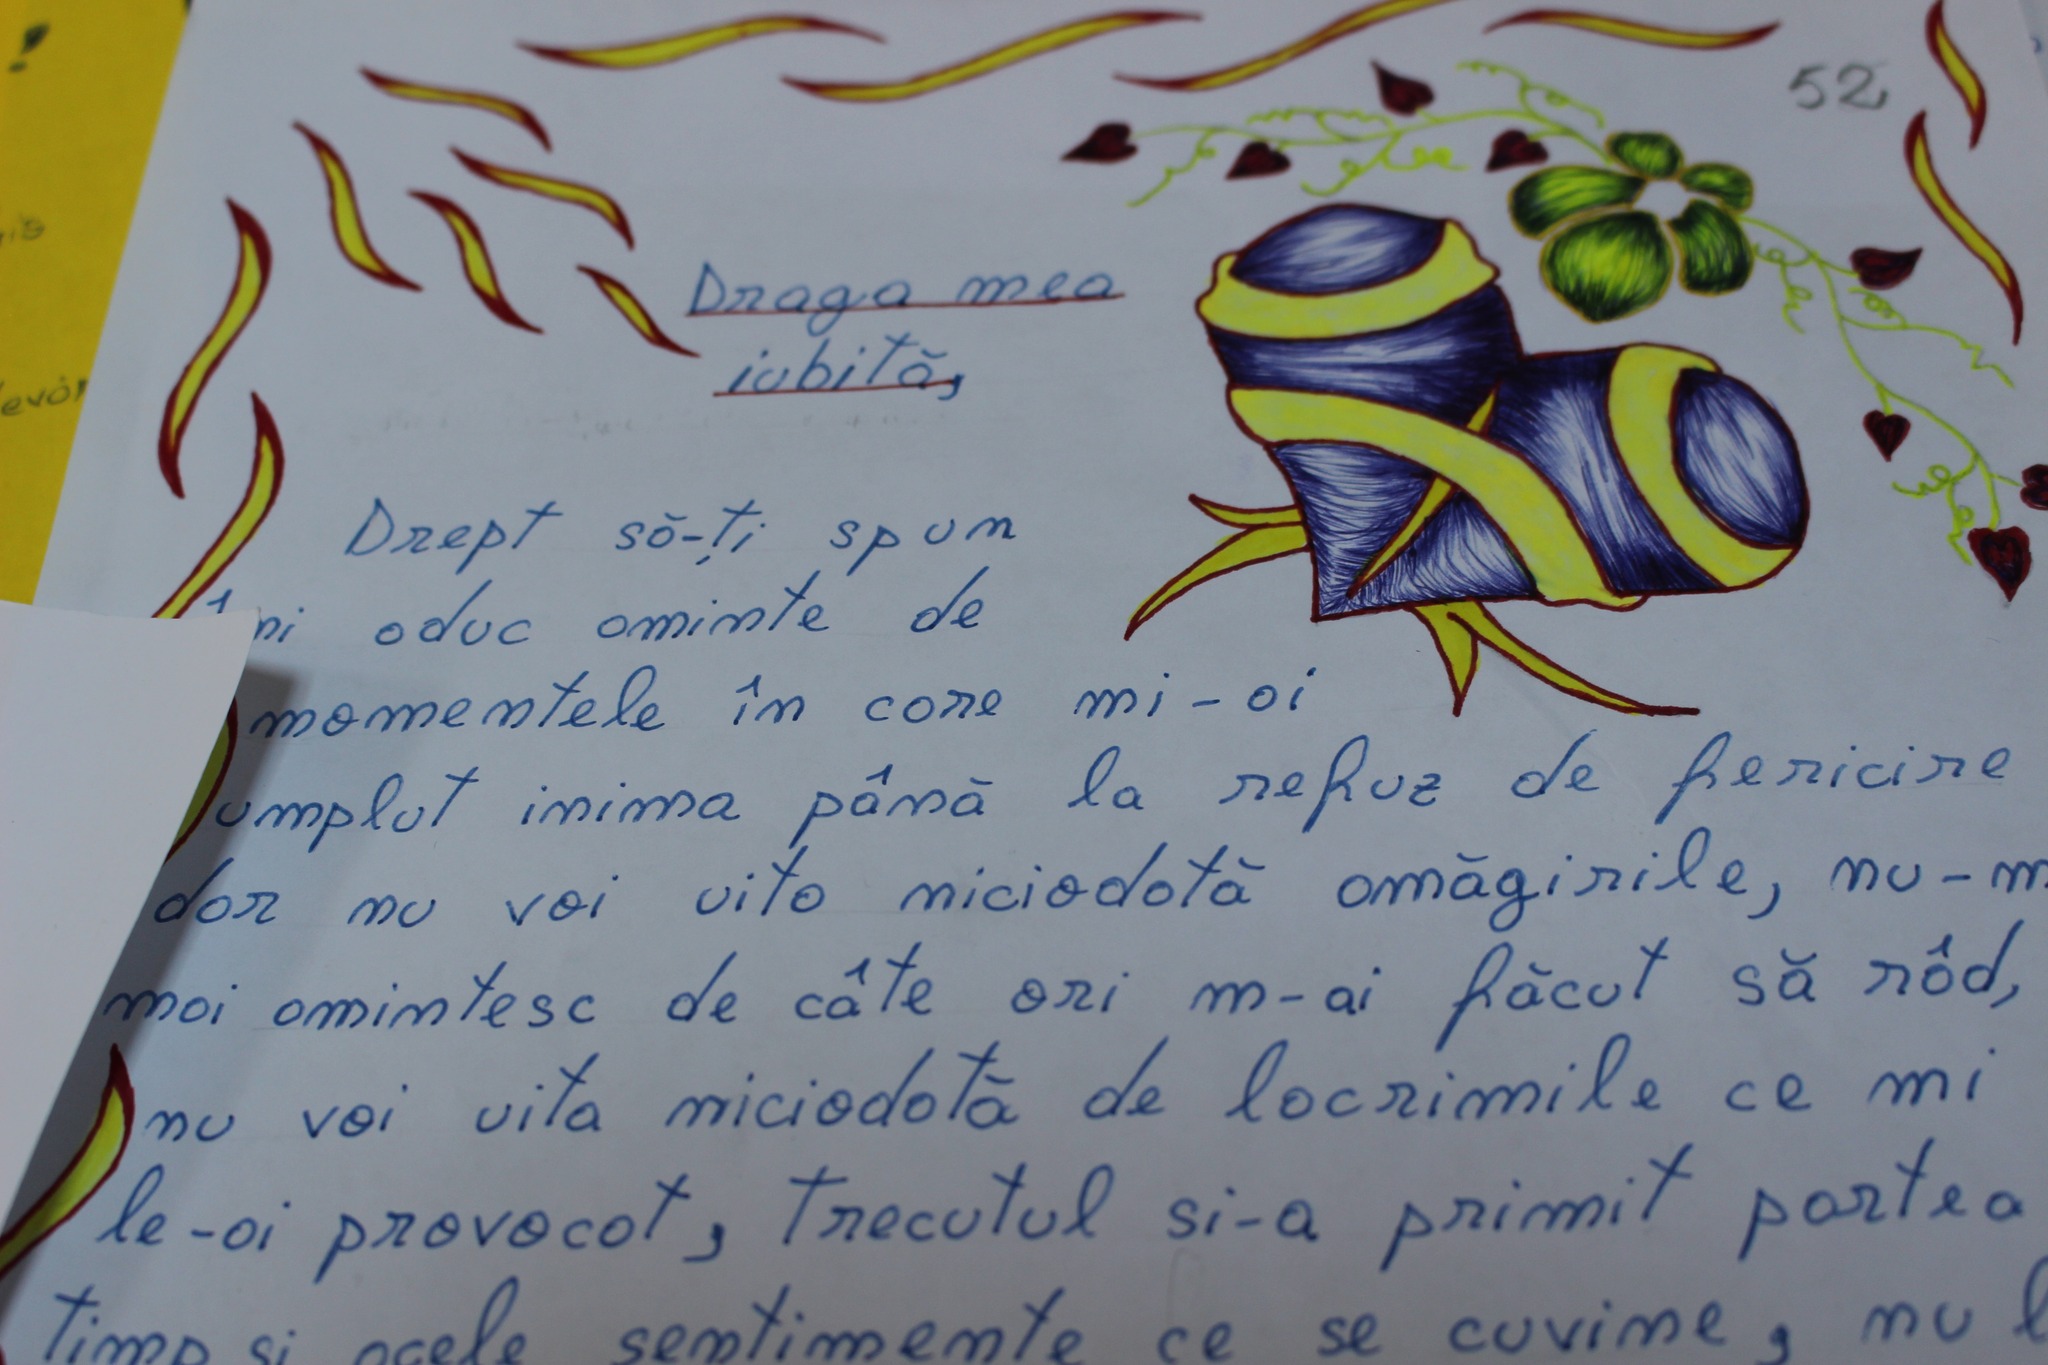 !
52
Draga mea
iubită,
Drept să-ți spun
îmi aduc aminte de
momentele în care mi-ai
umplut inima până la refuz de fericire
dar nu voi uita niciodată amăgirile, nu-m
mai amintesc de câte ori m-ai făcut să râd,
nu voi uita niciodată de lacrimile ce mi
le-ai provocat, trecutul si-a primit partea
timp si acele sentimente ce se cuvine, nu l